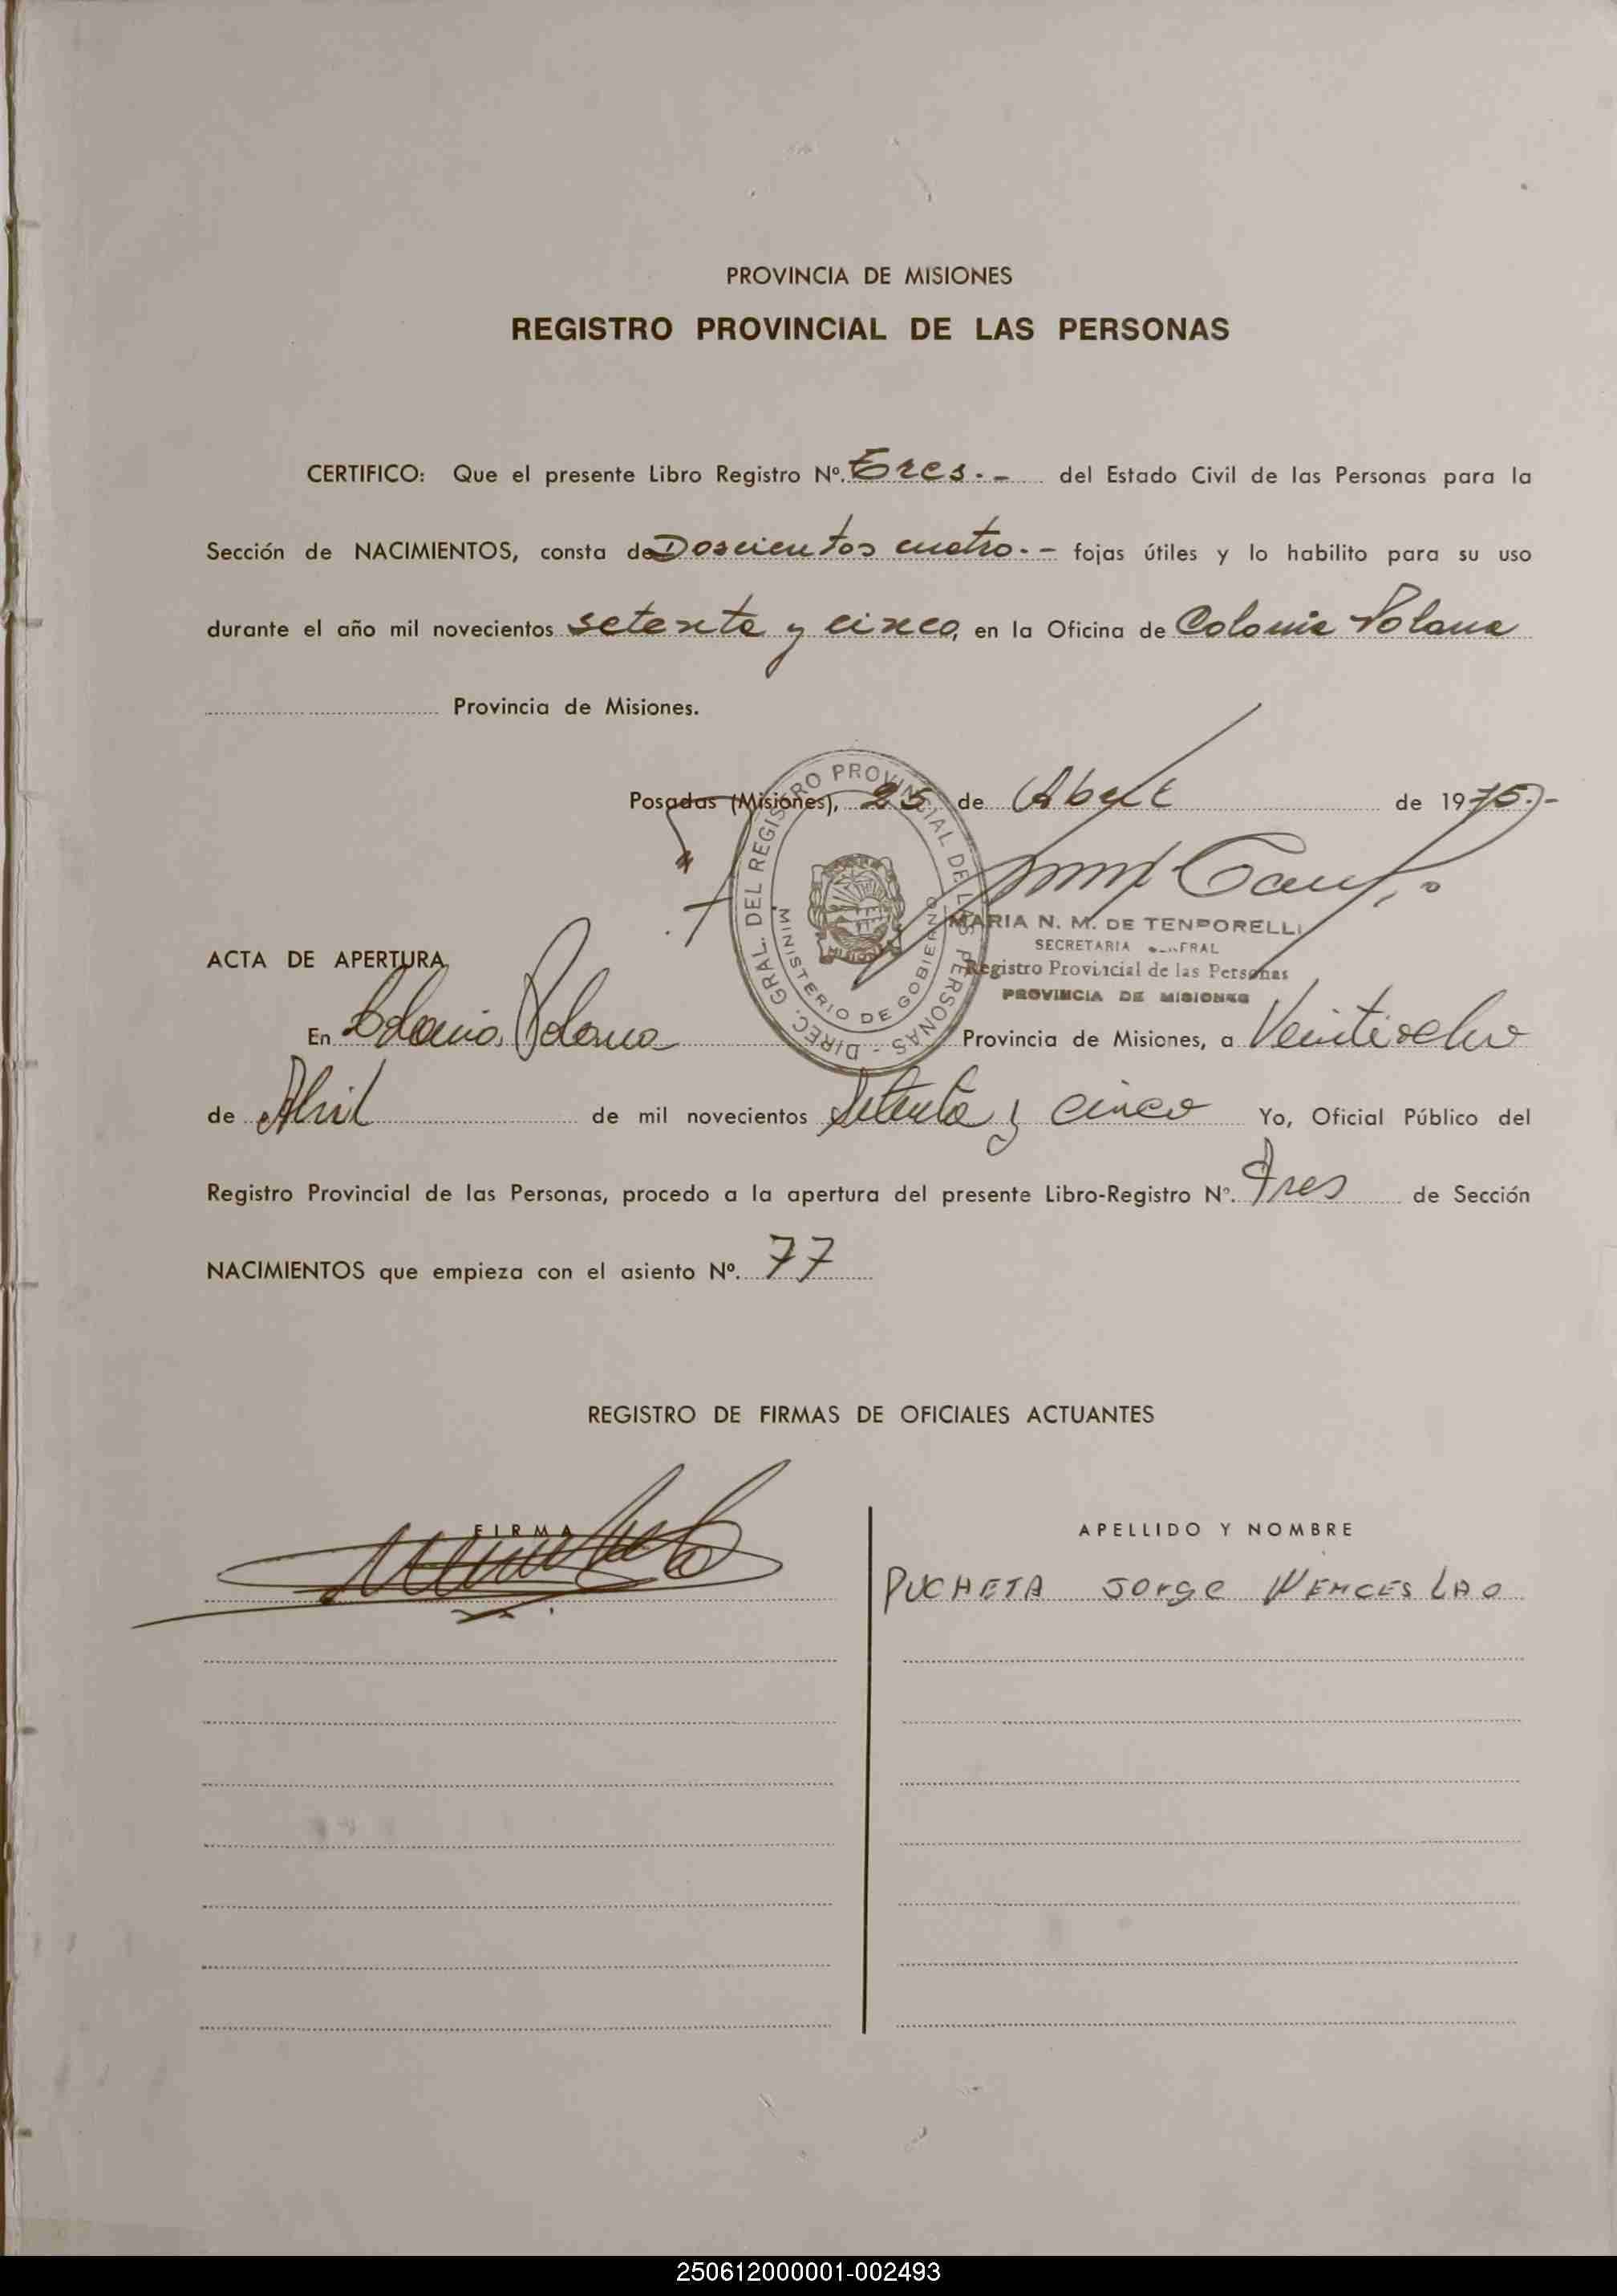 PROVINCIA DE MISIONES
REGISTRO PROVINCIAL DE LAS PERSONAS
CERTIFICO: Que el presente Libro Registro Nº. Tres.- del Estado Civil de las Personas para la
Sección de NACIMIENTOS, consta de Doscientos cuatro.- fojas útiles y lo habilito para su uso
durante el año mil novecientos setenta y cinco, en la Oficina de Colonia Polana
Provincia de Misiones.
Posadas (Misiones), 25 de Abril de 1975.-
DIREC. GRAL. DEL REGISTRO PROVINCIAL DE LAS PERSONAS -
MINISTERIO DE GOBIERNO
MARIA N. M. DE TENPORELLI
SECRETARIA GENERAL
Registro Provincial de las Personas
PROVINCIA DE MISIONES
ACTA DE APERTURA
En Colonia Polana Provincia de Misiones, a Veintiocho
de Abril de mil novecientos Setenta y cinco Yo, Oficial Público del
Registro Provincial de las Personas, procedo a la apertura del presente Libro-Registro Nº. Tres de Sección
NACIMIENTOS que empieza con el asiento Nº. 77
REGISTRO DE FIRMAS DE OFICIALES ACTUANTES
FIRMA APELLIDO Y NOMBRE
PUCHETA Jorge WENCESLAO
250612000001-002493